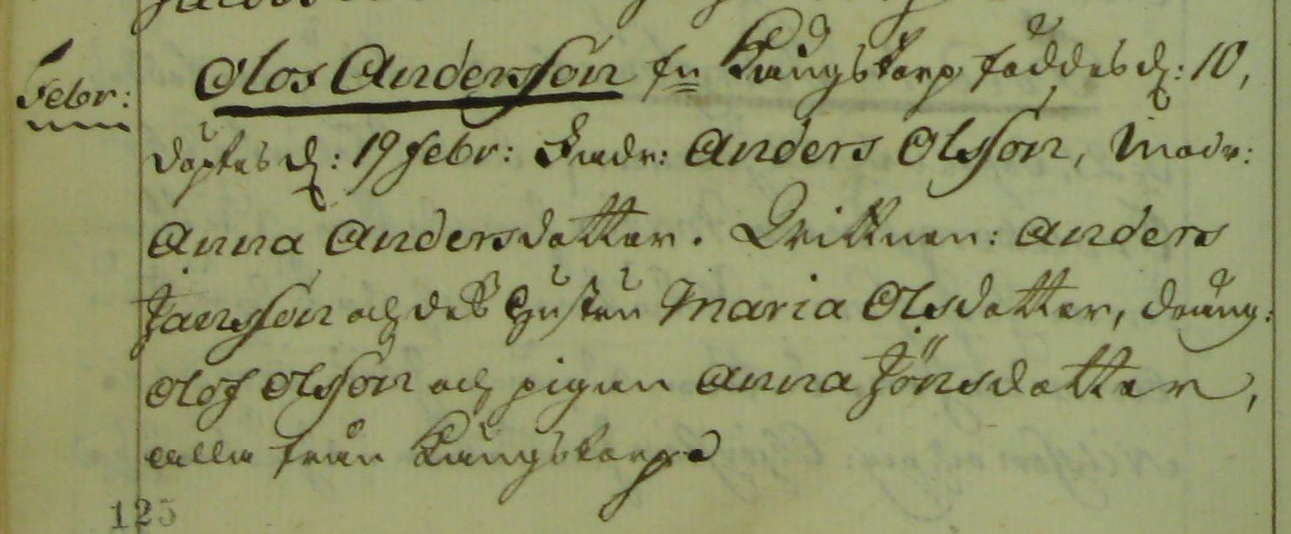 Febr:
Olof Andersson fn Kungstorp föddes d: 10,
döptes d: 19 Febr: Fadr: Anders Olsson, Modr:
Anna Andersdotter. Vittnen: Anders
Jansson och des Hustru Maria Olsdotter, dräng:
Olof Olsson och pigan Anna Jönsdotter,
alla från Kungstorp
125